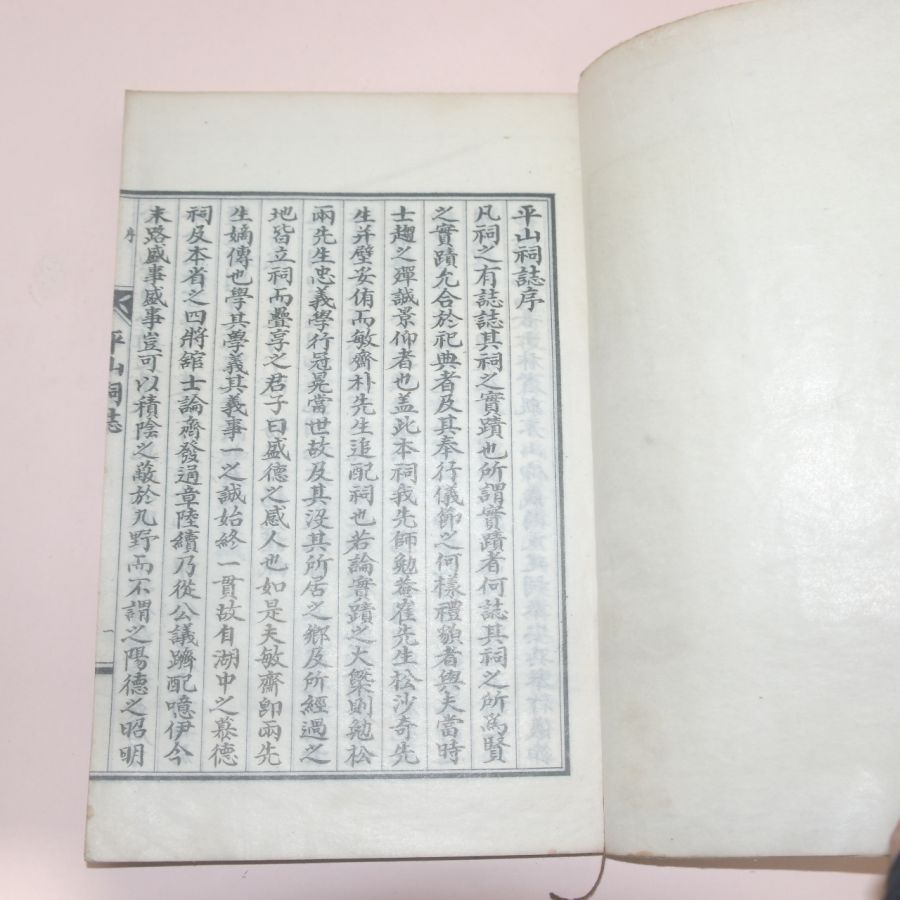 平山祠誌序
凡祠之有誌誌其祠之實蹟也所謂實蹟者何誌其祠之所爲賢
之實蹟允合於祀典者及其奉行儀節之何樣禮貌者與夫當時
士趨之殫誠景仰者也盖此本祠我先師勉菴崔先生松沙奇先
生并壁妥侑而敏齋朴先生追配祠也若論實蹟之大槩則勉松
兩先生忠義學行冠冕當世故及其沒其所居之鄉及所經過之
地皆立祠而疊享之君子曰盛德之感人也如是夫敏齋卽兩先
生嫡傳也學其學義其義事一之誠始終一貫故自湖中之慕德
祠及本省之四將舘士論齋發通章陸續乃從公議躋配噫伊今
末路盛事盛事豈可以積陰之蔽於九野而不謂之陽德之昭明
平山祠誌
序
一